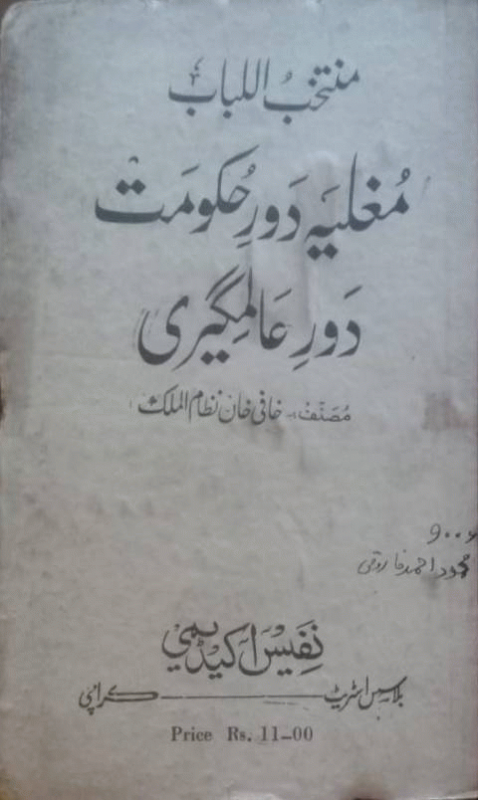 منتخبُ اللباب
مُغلیہ دَورِ حُکومَت
دَورِ عَالمگیری
مُصَنّفہ:- خافی خان نظام الملک
محمود احمد فاروقی
نفیس اکیڈیمی
بلاسس اسٹریٹ ــــــــ کراچی
Price Rs. 11-00